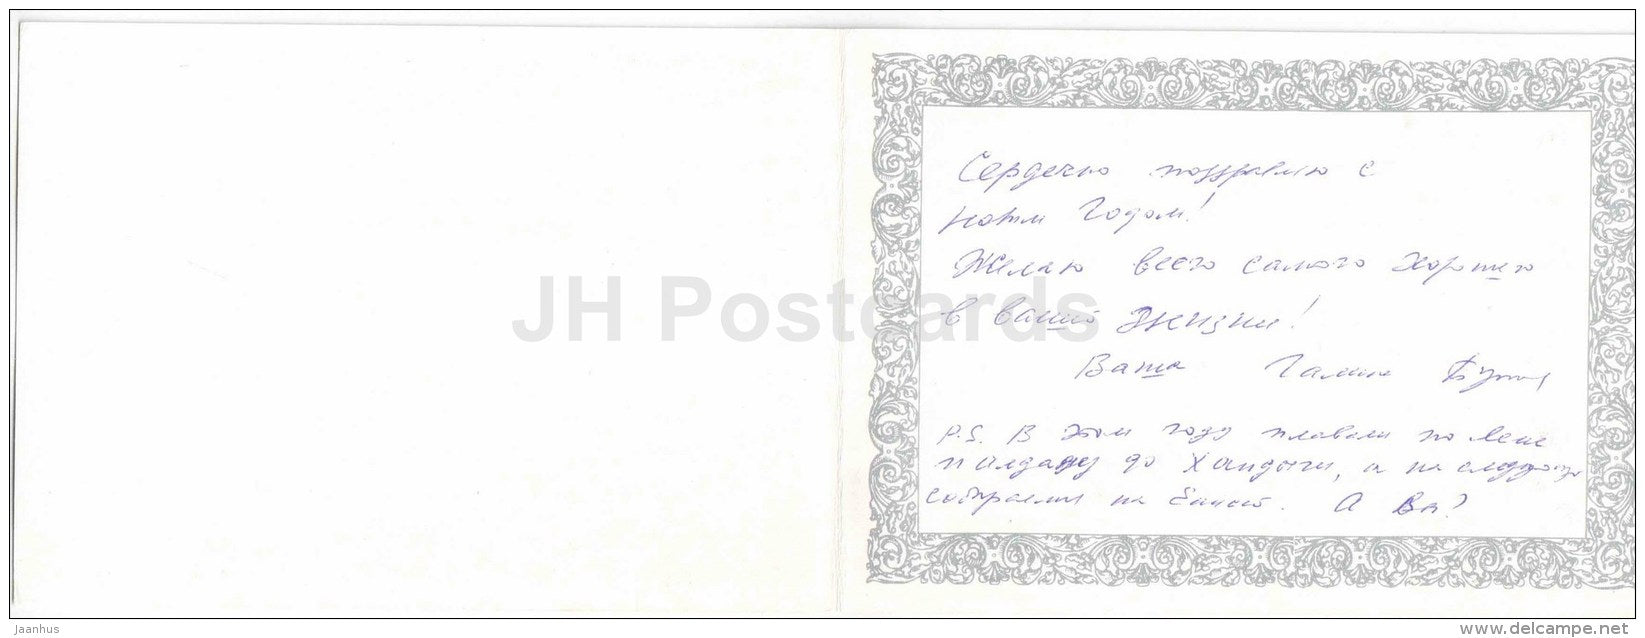 Сердечно поздравляю с
новым Годом!
Желаю всего самого хорошего
в вашей жизни!
Ваша Галина
P.S. В этом году плавали по Лене
и Алдану до Хандыги, а на следующий
собираемся на Енисей. А Вы?
JH Postcards
Jaanhus
www.delcampe.net